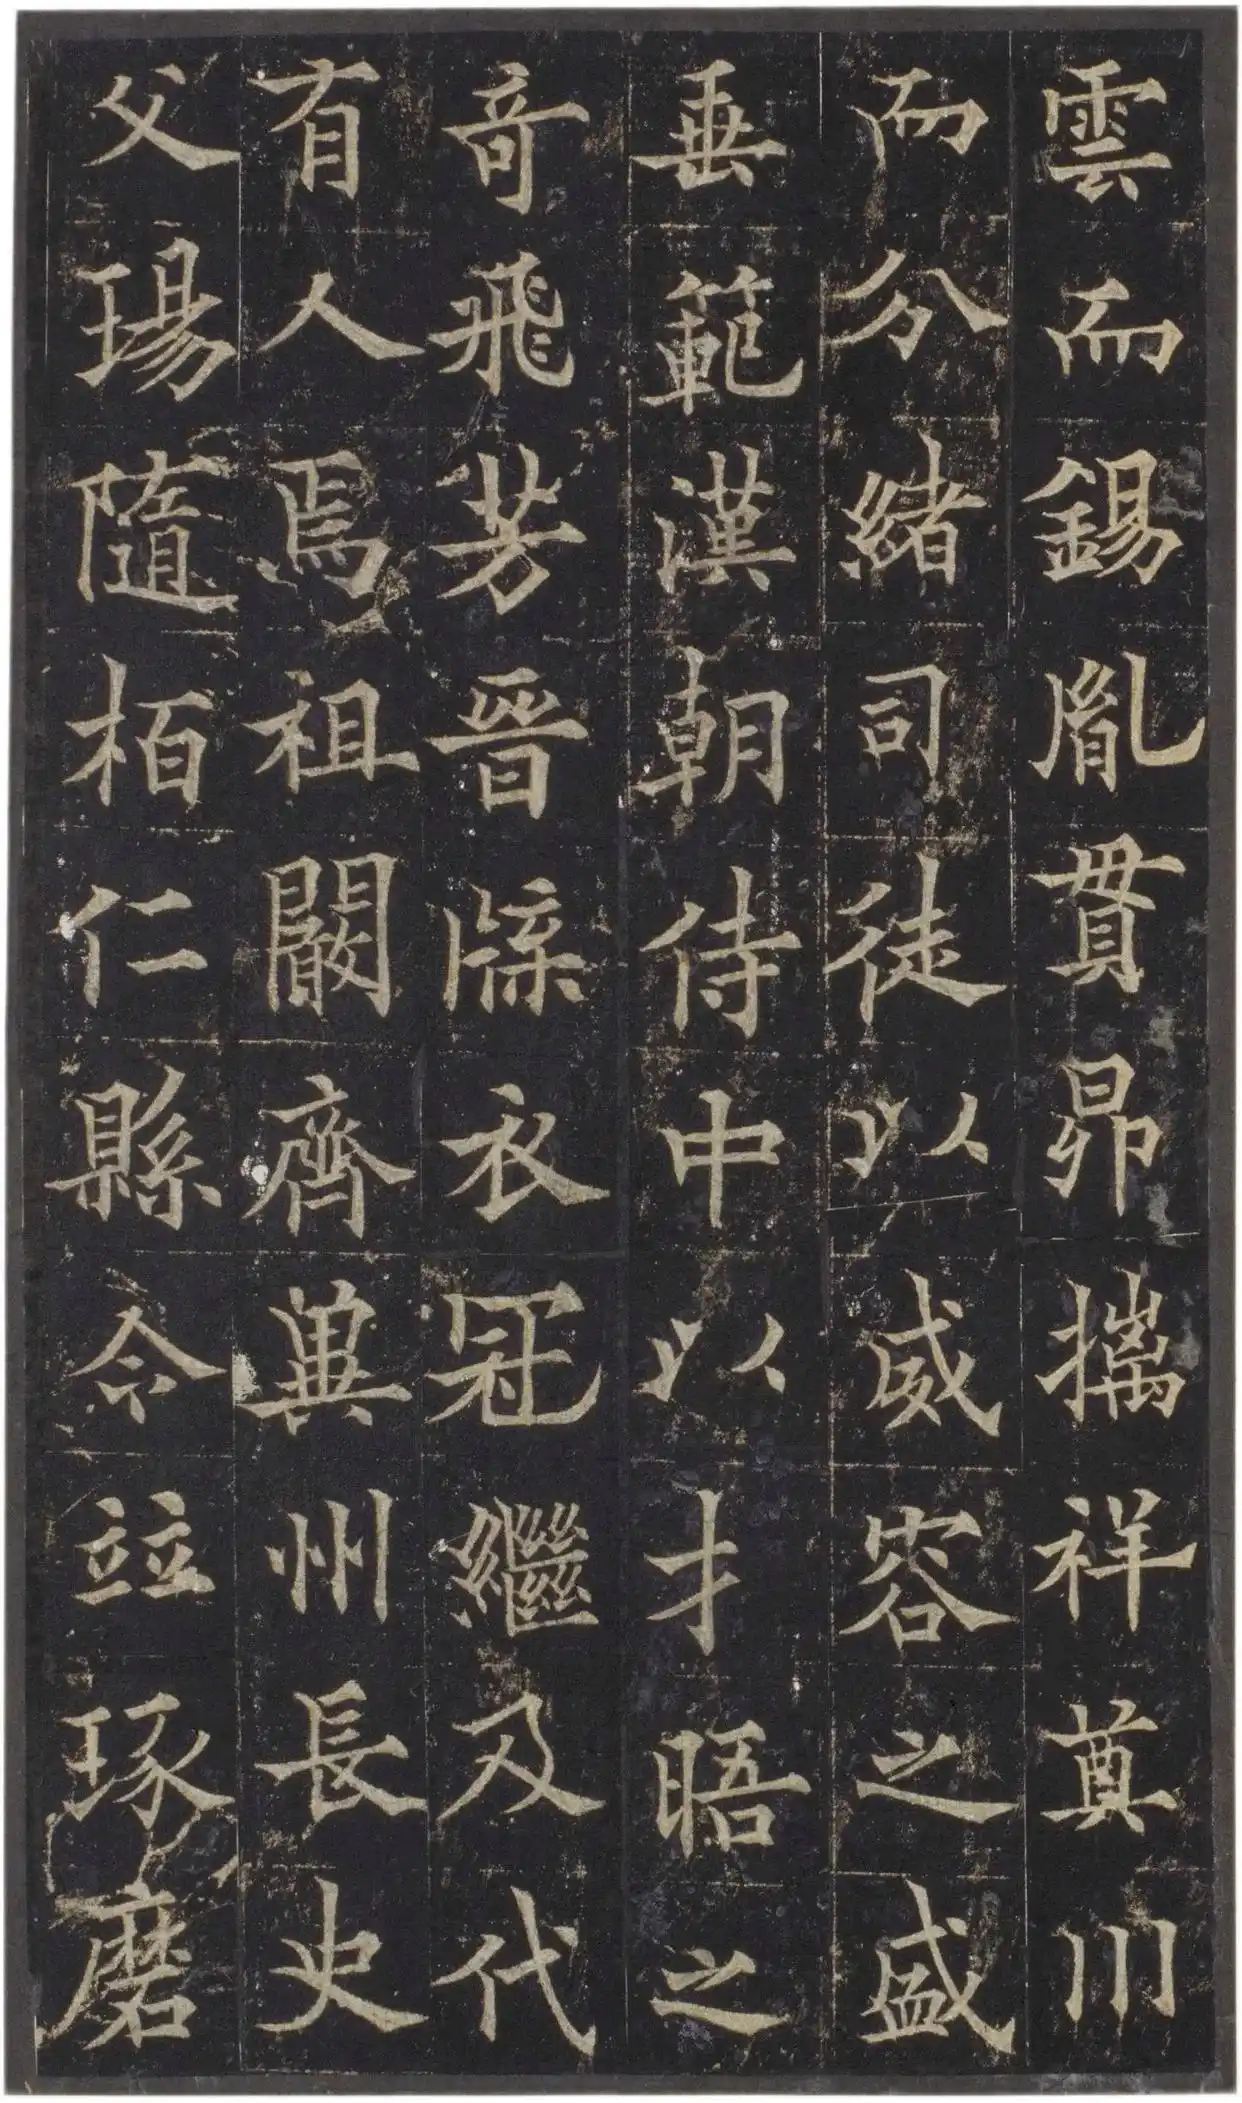 雲而錫胤貫昴摛祥奠川
而分緒司徒以威容之盛
垂範漢朝侍中以才晤之
奇飛芳晉牒衣冠繼及代
有人焉祖闞齊兾州長史
父瑒隨栢仁縣令竝琢磨